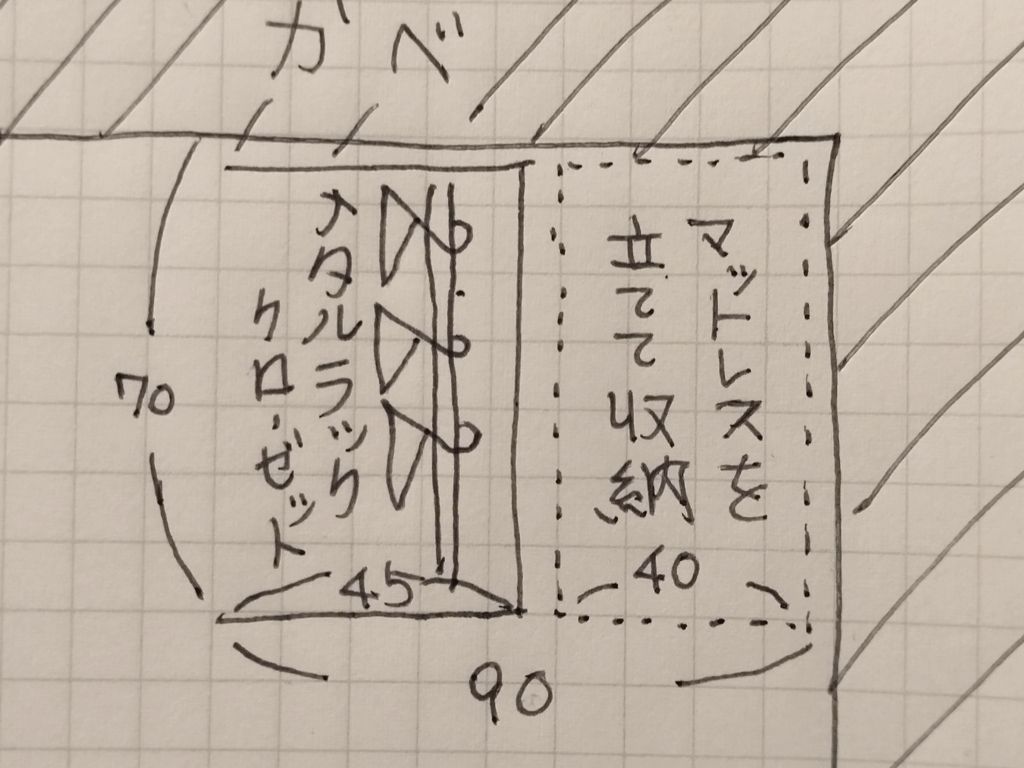 カベ
マットレスを
立てて収納
40
メタルラック
クローゼット
45
70
90